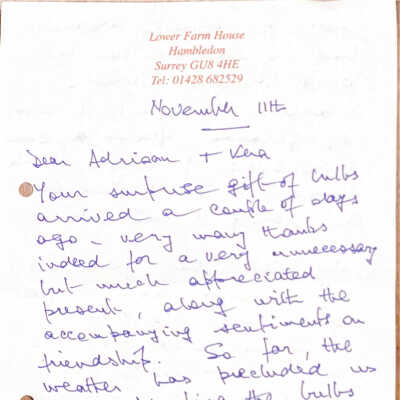 Lower Farm House
Hambledon
Surrey GU8 4HE
Tel: 01428 682529
November 11th
Dear Adrian + Vera
Your surprise gift of bulbs
arrived a couple of days
ago - very many thanks
indeed for a very unnecessary
but much appreciated
present, along with the
accompanying sentiments on
friendship. So far, the
weather has precluded us
the bulbs